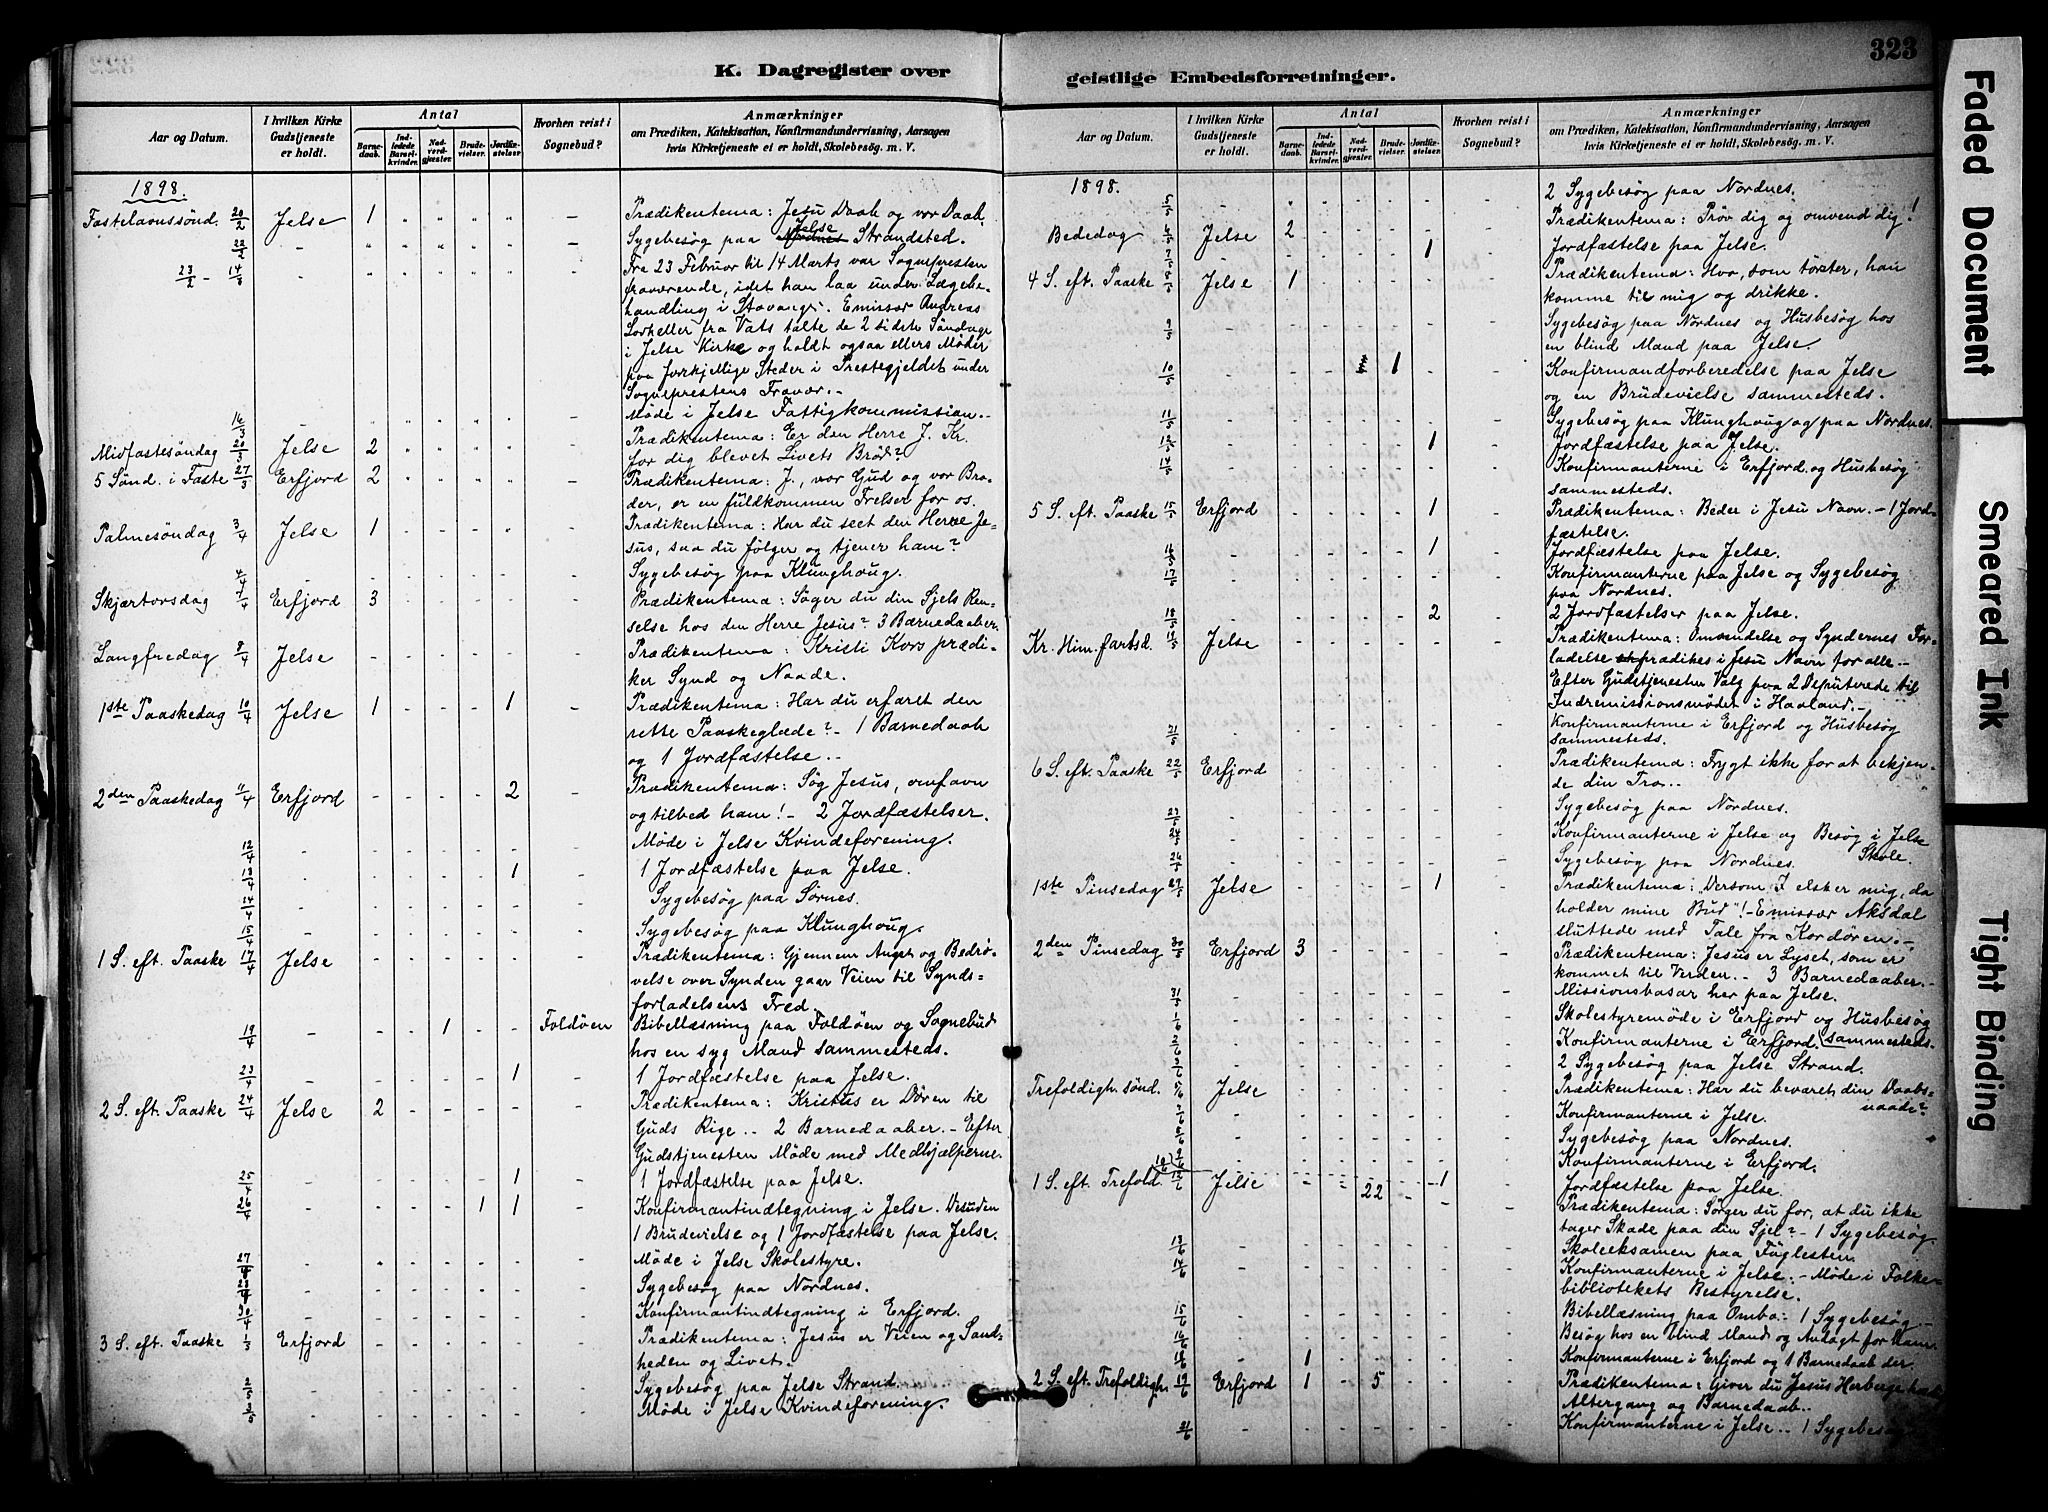 323
K. Dagregister over
Aar og Datum.
I hvilken Kirke Gudstjeneste er holdt.
Antal
Barne-daab.
Ind-ledede Barsel-kvinder.
Nad-verd-gjæster.
Brude-vielser.
Jordfæ-stelser.
Hvorhen reist i Sognebud?
Anmærkninger
om Prædiken, Katekisation, Konfirmandundervisning, Aarsagen
hvis Kirketjeneste ei er holdt, Skolebesøg. m. V.
1898.
Fastelavnssønd. 20/2 Jelse 1 " " " " - Prædikentema: Jesu Daab og vor Daab.
22/2 - " " " " " - Sygebesøg paa Jelse Strandsted.
23/2 - 14/3 Fra 23 Februar til 14 Marts var Sognepresten
fraværende, idet han laa under Lægebe-
handling i Stavanger. Emissær Andreas
fra Vats talte de 2 sidste Søndage
i Jelse Kirke og holdt ogsaa ellers Møder
paa forskjellige Steder i Prestegjeldet under
Sogneprestens Fravær.-
16/3 - Møde i Jelse Fattigkommission.-
Midfastesøndag 20/3 Jelse 2 Prædikentema: Er den Herre J. Kr.
for dig blevet Livets Brød?
5 Sønd. i Faste 27/3 Erfjord 2 Prædikentema: J., vor Gud og vor Bro-
der, er en fuldkommen Frelser for os.
Palmesøndag 3/4 Jelse 1 - Prædikentema: Har du seet den Herre Je-
sus, saa du følger og tjener ham?
4/4 - Sygebesøg paa Klunghoug.
Skjærtorsdag 7/4 Erfjord 3 - Prædikentema: Søger du din Sjels Ren-
selse hos den Herre Jesus? 3 Barnedaaber.
Langfredag 8/4 Jelse - Prædikentema: Kristi Kors prædi-
ker Synd og Naade.
1ste Paaskedag 10/4 Jelse 1 - - - 1 Prædikentema: Har du erfaret den
rette Paaskeglæde? - 1 Barnedaab
og 1 Jordfæstelse.-
2den Paaskedag 11/4 Erfjord - - - - 2 - Prædikentema: Søg Jesus, omfavn
og tilbed ham! - 2 Jordfæstelser.
12/4 - Møde i Jelse Kvindeforening.
13/4 - - - - - 1 - 1 Jordfæstelse paa Jelse.
14/4 - Sygebesøg paa Sørnes.
15/4 - Sygebesøg paa Klunghoug.
1 S. eft. Paaske 17/4 Jelse - Prædikentema: Gjennem Angst og Bedrø-
velse over Synden gaar Veien til Synds-
forladelsens Fred.
19/4 - - - 1 - - Foldøen Bibellæsning paa Foldøen og Sognebud
hos en syg Mand sammesteds.
23/4 - - - - - 1 - 1 Jordfæstelse paa Jelse.
2 S. eft. Paaske 24/4 Jelse 2 - - - - - Prædikentema: Kristus er Døren til
Guds Rige.- 2 Barnedaaber. - Efter
Gudstjenesten Møde med Medhjælperne.
25/4 - - - - - 1 - 1 Jordfæstelse paa Jelse.
26/4 - - - - 1 1 - Konfirmantindtegning i Jelse. Desuden
1 Brudevielse og 1 Jordfæstelse paa Jelse.
27/4 - Møde i Jelse Skolestyre.
28/4 - Sygebesøg paa Nordnes.
30/4 - Konfirmantindtegning i Erfjord.
3 S. eft. Paaske 1/5 Erfjord - Prædikentema: Jesus er Veien og Sand-
heden og Livet.
2/5 - Sygebesøg paa Jelse Strand.
3/5 - Møde i Jelse Kvindeforening.
geistlige Embedsforretninger.
Aar og Datum.
I hvilken Kirke Gudstjeneste er holdt.
Antal
Barne-daab.
Ind-ledede Barsel-kvinder.
Nad-verd-gjæster.
Brude-vielser.
Jordfæ-stelser.
Hvorhen reist i Sognebud?
Anmærkninger
om Prædiken, Katekisation, Konfirmandundervisning, Aarsagen
hvis Kirketjeneste ei er holdt, Skolebesøg. m. V.
1898.
5/5 - 2 Sygebesøg paa Nordnes.
Bededag 6/5 Jelse 2 - - - - - Prædikentema: Prøv dig og omvend dig!
7/5 - - - - - 1 - Jordfæstelse paa Jelse.
4 S. eft. Paaske 8/5 Jelse 1 - - - - - Prædikentema: Hvo, som tørster, han
komme til mig og drikke.
9/5 - Sygebesøg paa Nordnes og Husbesøg hos
en blind Mand paa Jelse.
10/5 - - - 1 - - Konfirmandforberedelse paa Jelse
og en Brudevielse sammesteds.
11/5 - Sygebesøg paa Klunghoug og paa Nordnes.
13/5 - - - - - 1 - Jordfæstelse paa Jelse.
14/5 - Konfirmanterne i Erfjord og Husbesøg
sammesteds.
5 S. eft. Paaske 15/5 Erfjord - - - - 1 - Prædikentema: Beder i Jesu Navn. - 1 Jord-
fæstelse.
16/5 - - - - - 1 - Jordfæstelse paa Jelse.
17/5 - Konfirmanterne paa Jelse og Sygebesøg
paa Nordnes.
18/5 - - - - - 2 - 2 Jordfæstelser paa Jelse.
Kr. Him. fartsd. 19/5 Jelse - Prædikentema: Omvendelse og Syndernes For-
ladelse prædikes i Jesu Navn for alle.-
Efter Gudstjenesten Valg paa 2 Deputerede til
Indremissionsmødet i Haaland.-
21/5 - Konfirmanterne i Erfjord og Husbesøg
sammesteds.
6 S. eft. Paaske 22/5 Erfjord - Prædikentema: Frygt ikke for at bekjen-
de din Tro.-
23/5 - Sygebesøg paa Nordnes.
24/5 - Konfirmanterne i Jelse og Besøg i Jelse
Skole.
26/5 - Sygebesøg paa Nordnes.
1ste Pinsedag 29/5 Jelse - - - - 1 - Prædikentema: "Dersom I elsker mig, da
holder mine Bud"! - Emissær Aksdal
sluttede med Tale fra Kordøren.-
2den Pinsedag 30/5 Erfjord 3 - - - - - Prædikentema: Jesus er Lyset, som er
kommet til Verden.- 3 Barnedaaber.-
31/5 - Missionsbasar her paa Jelse.
1/6 - Skolestyremøde i Erfjord og Husbesøg
sammesteds.
2/6 - Konfirmanterne i Erfjord.
3/6 - 2 Sygebesøg paa Jelse Strand.
Trefoldigh. sønd. 5/6 Jelse - Prædikentema: Har du bevaret din Daabs-
naade?
7/6 - Konfirmanterne i Jelse.
8/6 - Sygebesøg paa Nordnes.
9/6 - Konfirmanterne i Erfjord.
10/6 - - - - - 1 Jordfæstelse paa Jelse.
1 S. eft. Trefold. 12/6 Jelse - - 22 - - - Prædikentema: Sørger du for, at du ikke
tager Skade paa din Sjel? - 1 Sygebesøg.
13/6 - Skoleeksamen paa Fuglesten.
14/6 - Konfirmanterne i Jelse. - Møde i Folke-
bibliotekets Bestyrelse.
15/6 - Bibellæsning paa Ombo. 1 Sygebesøg.-
16/6 - Besøg hos en blind Mand og Andagt for ham.
18/6 - 1 - - - - - Konfirmanterne i Erfjord og 1 Barnedaab der.
2 S. eft. Trefoldigh. 19/6 Erfjord 1 - 5 - - - Prædikentema: Giver du Jesus Herberge hos
Altergang og Barnedaab.-
21/6 - Konfirmanterne i Jelse.- 1 Sygebesøg
Faded Document
Smeared Ink
Tight Binding